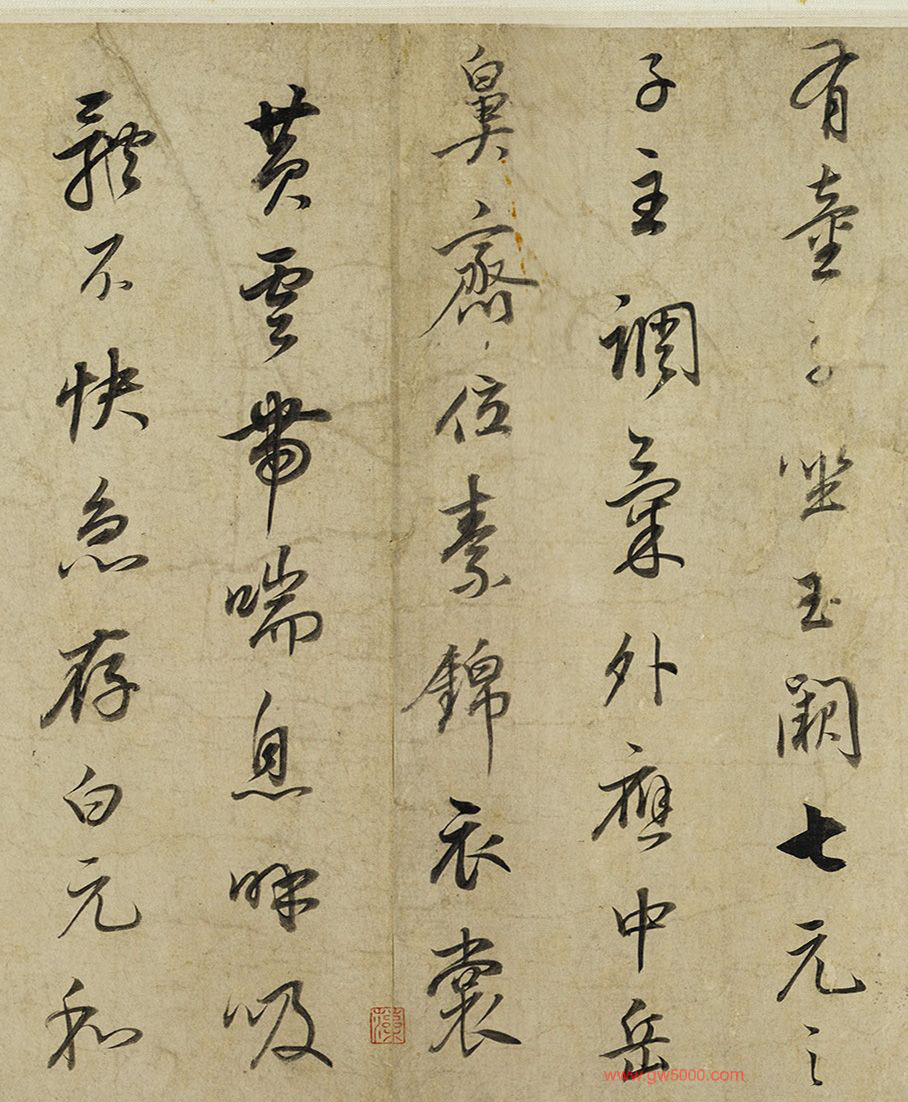 有童子坐玉闕七元之
子主調氣外應中岳
鼻齊位素錦衣裳
黃雲帶喘息呼吸
體不快急存白元和
www.gw5000.com